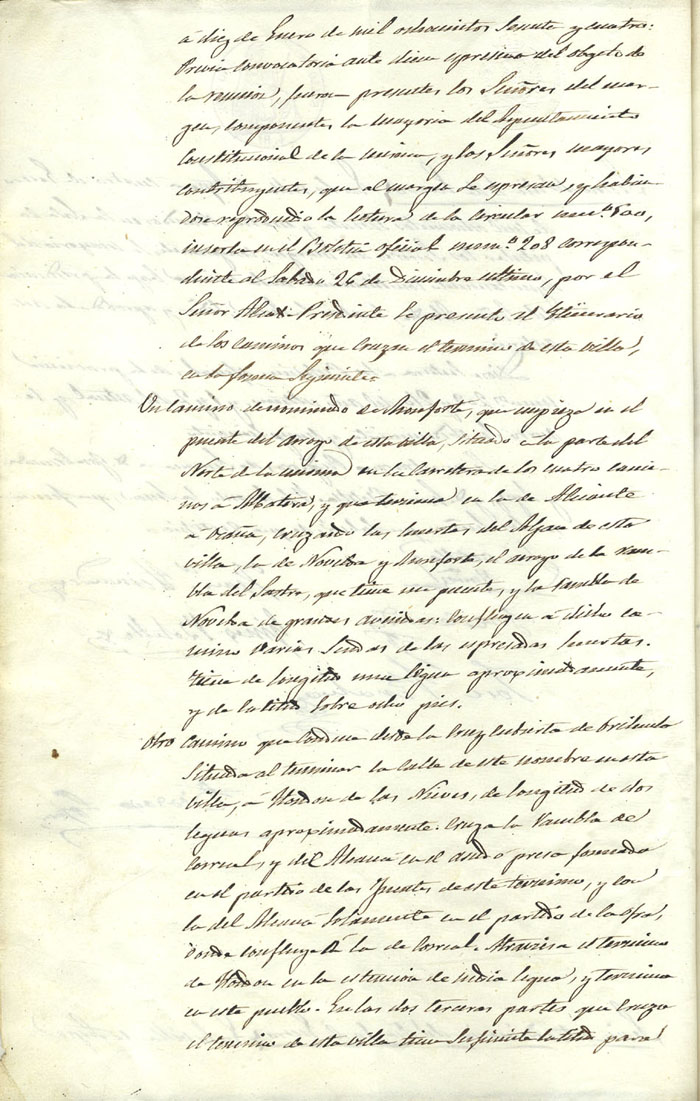 á diez de Enero de mil ochocientos sesenta y cuatro:
Previa convocatoria ante diem espresiva del objeto de
la reunion, fueron presentes los Señores del mar-
gen, componentes la mayoria del Ayuntamiento
Constitucional de la misma, y los Señores mayores
contribuyentes, que al margen se espresan, y habien
dose reproducido la lectura de la Circular num.º 500,
inserta en el Boletin oficial num.º 208 correspon-
diente al Sabado 26 de Diciembre ultimo, por el
Señor Alcalde Presidente se presentó el Itinerario
de los caminos que cruzan el termino de esta villa,
en la forma siguiente.
Un Camino denominado de Monforte, que empieza en el
puente del arroyo de esta villa, situado á la parte del
Norte de la misma en la Carretera de los cuatro cami-
nos á Matara, y que termina en la de Alicante
á Ocaña, cruzando las huertas del Aljau de esta
villa, la de Novelda y Monforte, el arroyo de la Ram-
bla del Sastre, que tiene un puente, y la Rambla de
Novelda de grandes avenidas: Confluyen á dicho ca-
mino varias sendas de las espresadas huertas.
Tiene de longitud una legua aproximadamente,
y de latitud sobre ocho pies.
Otro Camino que conduce desde la Cruz cubierta de Orihuela
situada al terminar la calle de este nombre en esta
villa, á Hondon de las Nieves, de longitud de dos
leguas aproximadamente. Cruza la Rambla de
Correal, y del Alcaná en el asud ó presa formado
en el partido de las Fuentes de este termino, y con
la del Alcaná solamente en el partido de la Ofra,
donde confluye la de Correal. Atraviesa el termino
de Hondon en la estencion de media legua, y termina
en este pueblo. En las dos terceras partes que cruza
el termino de esta villa tiene suficiente latitud para